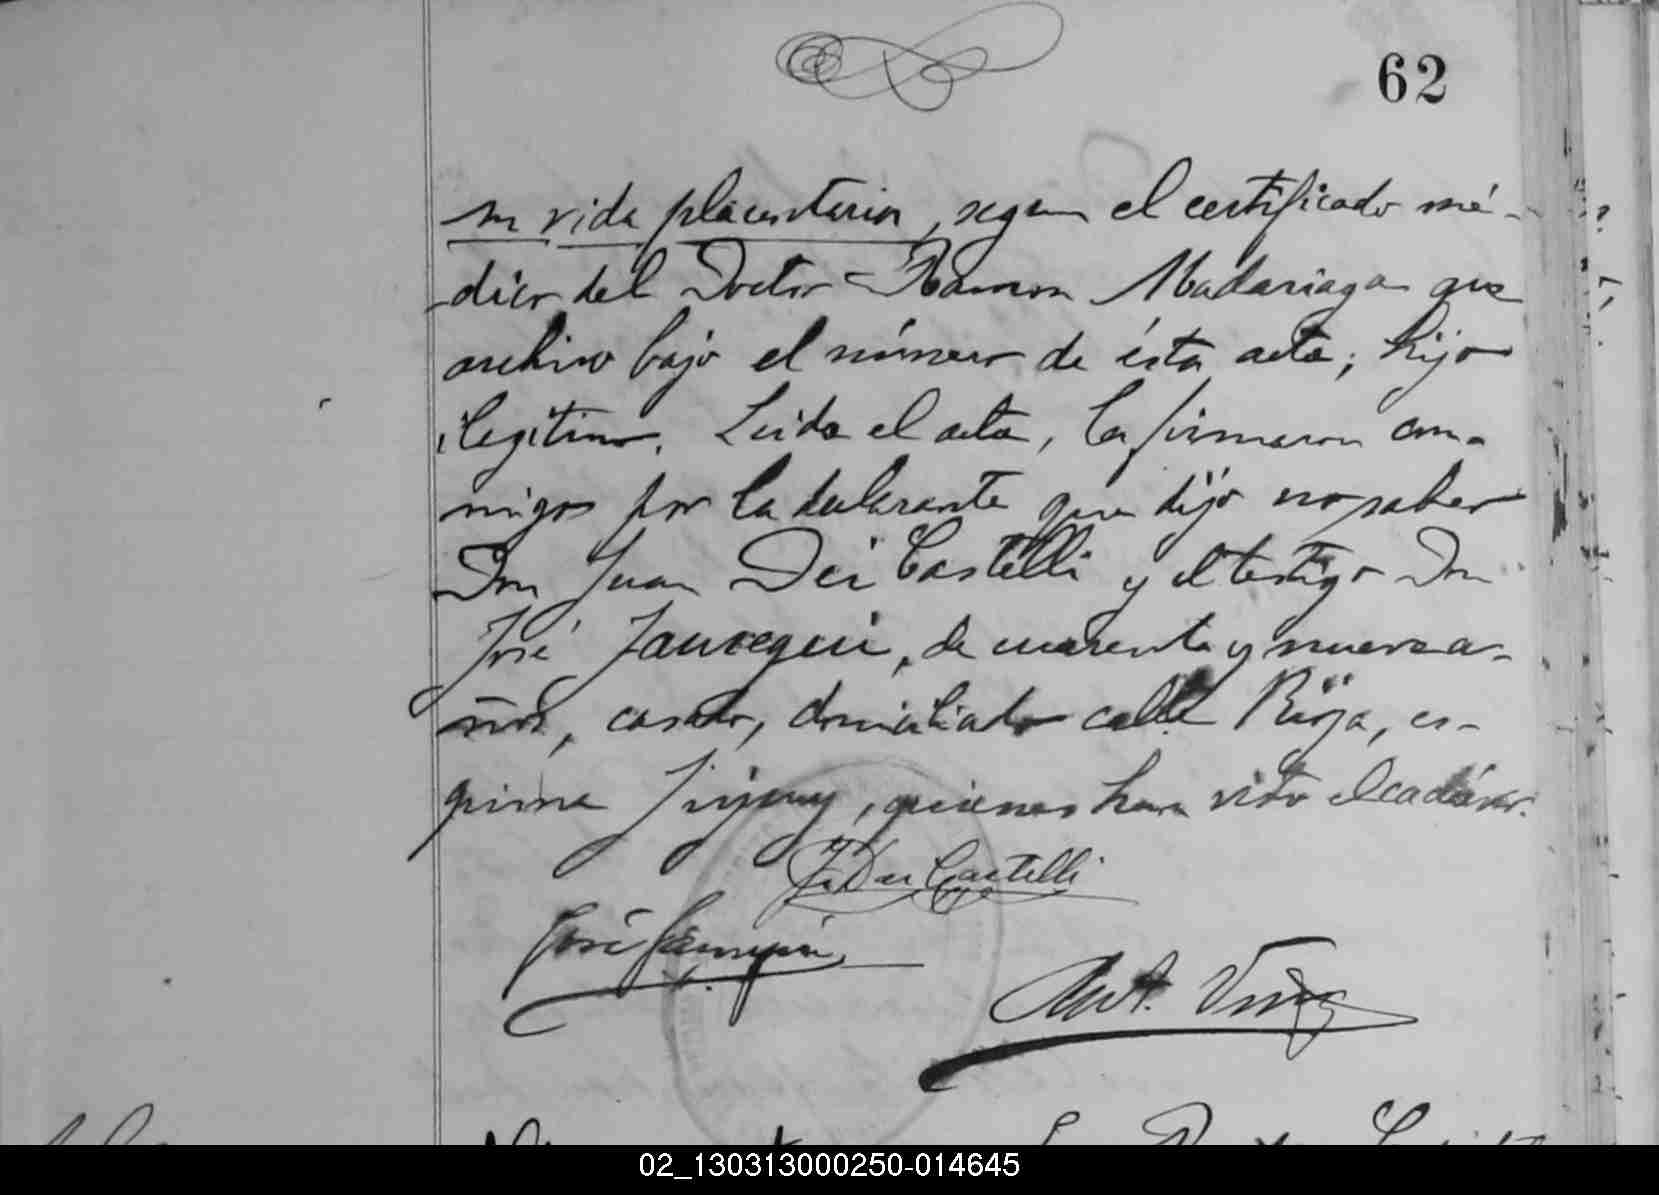 62
su vida placentaria, segun el certificado mé-
dico del Doctor Ramon Madariaga que
archivo bajo el número de ésta acta; hijo
ilegitimo. Leida el acta, la firmaron con-
migo por la declarante que dijo no saber
Don Juan Dei Castelli y el testigo Don
José Jauregui, de cuarenta y nueve a-
ños, casado, domiciliado calle Rioja, es-
quina Jujuy, quienes han visto el cadáver.
J. Dei Castelli
José Jauregui
Ant.
02_130313000250-014645